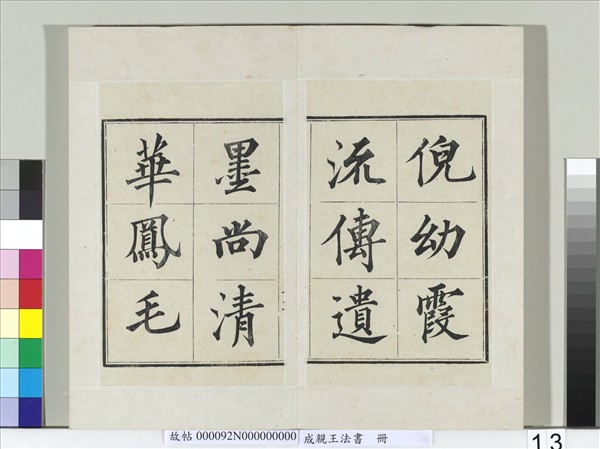 倪幼霞
流傳遺
墨尚清
華鳳毛
故帖 000092N000000000 成親王法書 冊
13